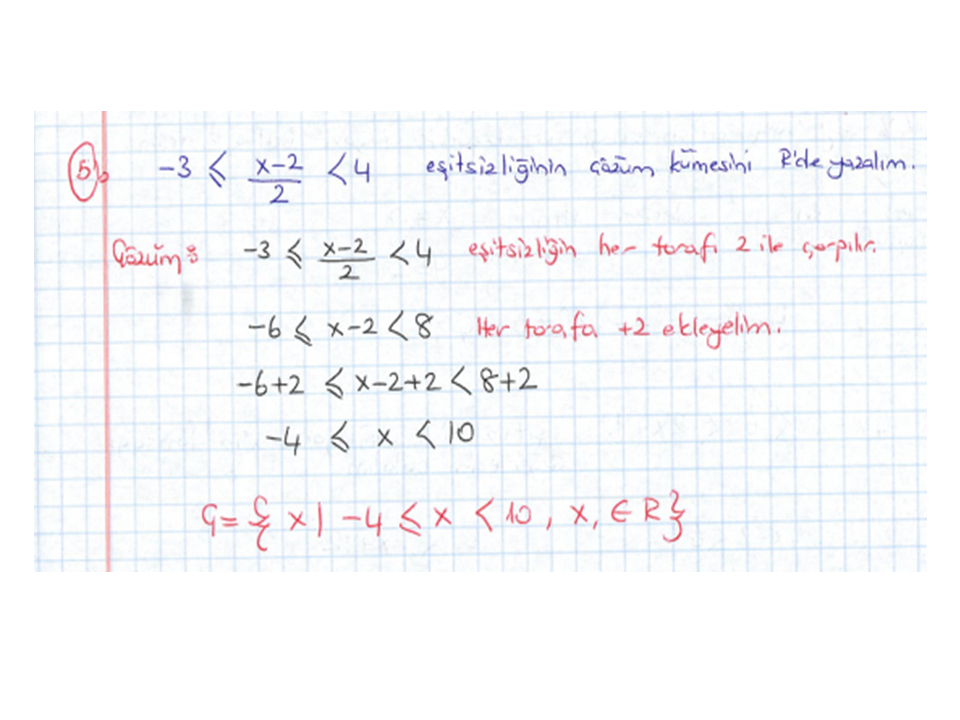 5) -3 ≤ x-2/2 < 4 eşitsizliğinin çözüm kümesini R'de yazalım.
Çözüm: -3 ≤ x-2/2 < 4 eşitsizliğin her tarafı 2 ile çarpılır.
-6 ≤ x-2 < 8 Her tarafa +2 ekleyelim.
-6+2 ≤ x-2+2 < 8+2
-4 ≤ x < 10
Ç= { x | -4 ≤ x < 10, x, ∈ R }